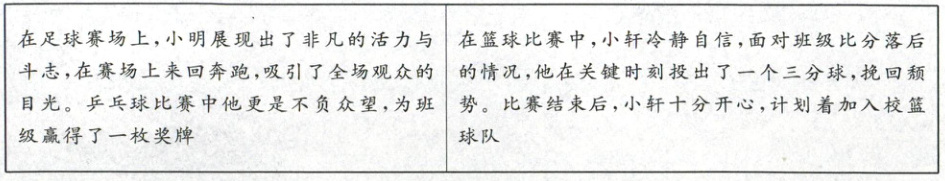 在足球赛场上,小明展现出了非凡的活力与
斗志,在赛场上来回奔跑,吸引了全场观众的
目光。乒乓球比赛中他更是不负众望,为班
级赢得了一枚奖牌
在篮球比赛中,小轩冷静自信,面对班级比分落后
的情况,他在关键时刻投出了一个三分球,挽回颓
势。比赛结束后,小轩十分开心,计划着加入校篮
球队